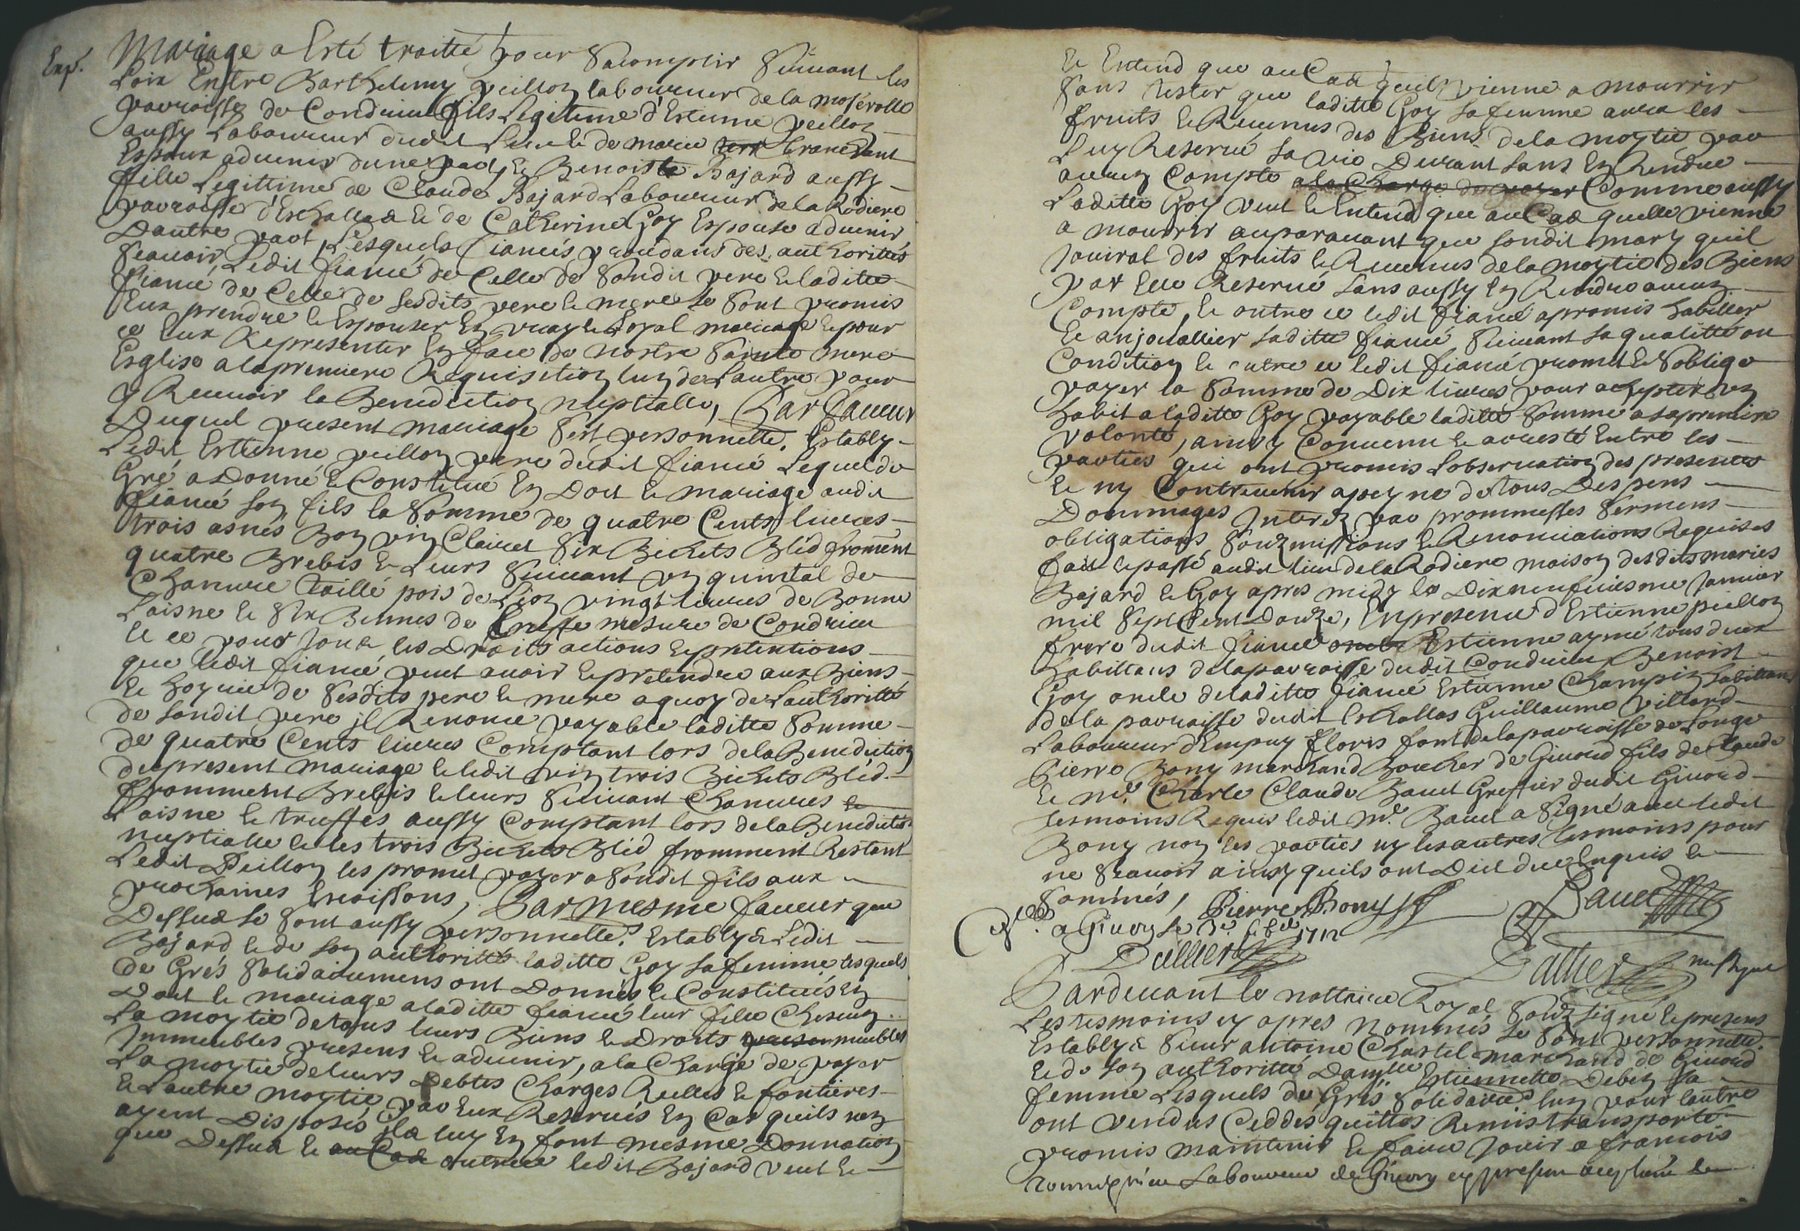 Exp.
Mariage a Esté traitté pour Sacomplir Suiuant les
Loix Entre Barthelemy peillon laboureur de la moférolle
parroisse de Condrieu fils Legitime d'Estienne peillon
aussy Laboureur dudit Lieu et de marie
Espoux aduenir dune part Et Benoiste Bajard aussy
fille Legittime de Claude Bajard Laboureur de la Rodiere
parroisse d'Eschallas et de Catherine Goy Espouse aduenir
Dautre part Lesquels fiancés procedans des authorittés
Scauoir, Ledit fiancé de Celle de Sondit pere et laditte
fiancé de Celle de Sesdits pere et mere Se Sont promis
Eux prendre et Espouser En vray et Loyal mariage et pour
ce Eux Representer En face de nostre Sainte mere
Esglise a la premiere Requisition lun de Lautre pour
y Receuoir la Benediction nuptialle, En faueur
Duquel present mariage Sest personnelle. Estably
Ledit Estienne peillon pere dudit fiancé Lequel de
Gré a Donné et Constitué En Dot et mariage audit
fiancé Son fils la Somme de quatre Cents liures
trois asnés Bon vin Clairet Six Bichets Bléd froment
quatre Brebis et Leurs Suiuant vn quintal de
Chanure taillé pois de Lion vingt liures de Bonne
Laisne et Six Bennes de truffe mesure de Condrieu
et ce pour tous les Droits actions et pretentions
que Ledit fiancé peut auoir et pretendre aux Biens
et hoyrie de Sesdits pere et mere a quoy de Lauthoritté
de Sondit pere jl Renonce payable laditte Somme
de quatre Cents liures Comptant lors de la Benediction
du present mariage et ledit vin trois Bichets Bléd
fromment Brebis et leurs Suiuant Chanures et
Laisne et truffes aussy Comptant lors de la Benediction
nuptialle et les trois Bichets Bléd fromment Restant
Ledit Peillon les promet payer a Sondit fils aux
prochaines moissons, Par mesme faueur que
Dessus Se Sont aussy personnelle. Establys Ledit
Bajard et de Son authoritté laditte Goy Sa femme lesquels
de Grés Solidairement ont Donnés et Constitués En
Dot et mariage a laditte fiancé leur fille Chescun
La moytié de tous leurs Biens et Droits meubles
Jmmeubles presens et aduenir, a la Charge de payer
La moytié de leurs Debtes Charges Reelles et fontieres
Et Lautre moytié par Eux Reserués En Cas quils nen
ayent Disposés Ils luy En font mesme Donnation
que Dessus et au Cas outre ce ledit Bajard veut et
Et Entend que au Cas quil vienne a mourrir
Sans tester que laditte Goy Sa femme aura les
fruits et Reuenus des Biens de la moytié par
Luy Reserué Sa vie Durant Sans En Rendre
aucun Compte a la Charge de payer Comme aussy
Laditte Goy veut et Entend que au Cas quelle vienne
a mourrir auparauant que Sondit mary quil
Jouira des fruits et Reuenus de la moytié des Biens
par Elle Reserué Sans aussy En Rendre aucun
Compte, Et outre ce ledit fiancé a promis habiller
Et anjouallier laditte fiancé Suiuant Sa qualitté ou
Condition Et outre ce ledit fiancé promet et Soblige
payer la Somme de Dix liures pour achepter vn
habit a laditte Goy payable laditte Somme a sa premiere
volonté, ainsy Conuenu et arresté Entre les
parties qui ont promis Lobseruation des presentes
Et ny Contreuenir a peyne de tous Despens
Dommages Interest par prommesses Sermens
obligations Soubzmissions et Renonciations Requises
fait et passé audit lieu de la Rodiere maison desdits mariés
Bajard et Goy apres midy le Dixneufuiesme Januier
mil Sept Cent Douze, En presence d'Estienne peillon
frere dudit fiancé Estienne aymé tous deux
habittans de la parroisse dudit Condrieu Benoist
Goy oncle de laditte fiancé Estienne Champin habittans
de la parroisse dudit Eschallas Guillaume Villard
Laboureur d'Empuy floris font de la parroisse de Longe
Pierre Bony marchand Boucher de Giuord fils de Claude
Et mr. Charle Claude Bauet Greffier dudit Giuord
tesmoins Requis ledit Mr. Bauet a Signé auec ledit
Bony non les parties ny les autres tesmoins pour
ne Scauoir ainsy quils ont Dict duement Enquis et
Sommés, Pierre Bony Bauet
a Giuors le 1712
Dallier Dallier no.re Royal
Pardeuant le nottaire Royal Soubzsigné et presens
Les tesmoins cy apres Nommés Se Sont personnelle.
Establys Sieur antoine Chastel marchand de Giuord
Et de Son authoritté Damlle Estiennette Debez Sa
femme Lesquels de Grés Solidairet. lun pour lautre
ont vendus Ceddés quittés Remis transportés
promis maintenir et faire Jouir a francois
Laboureur de Giuord cy present acceptant et